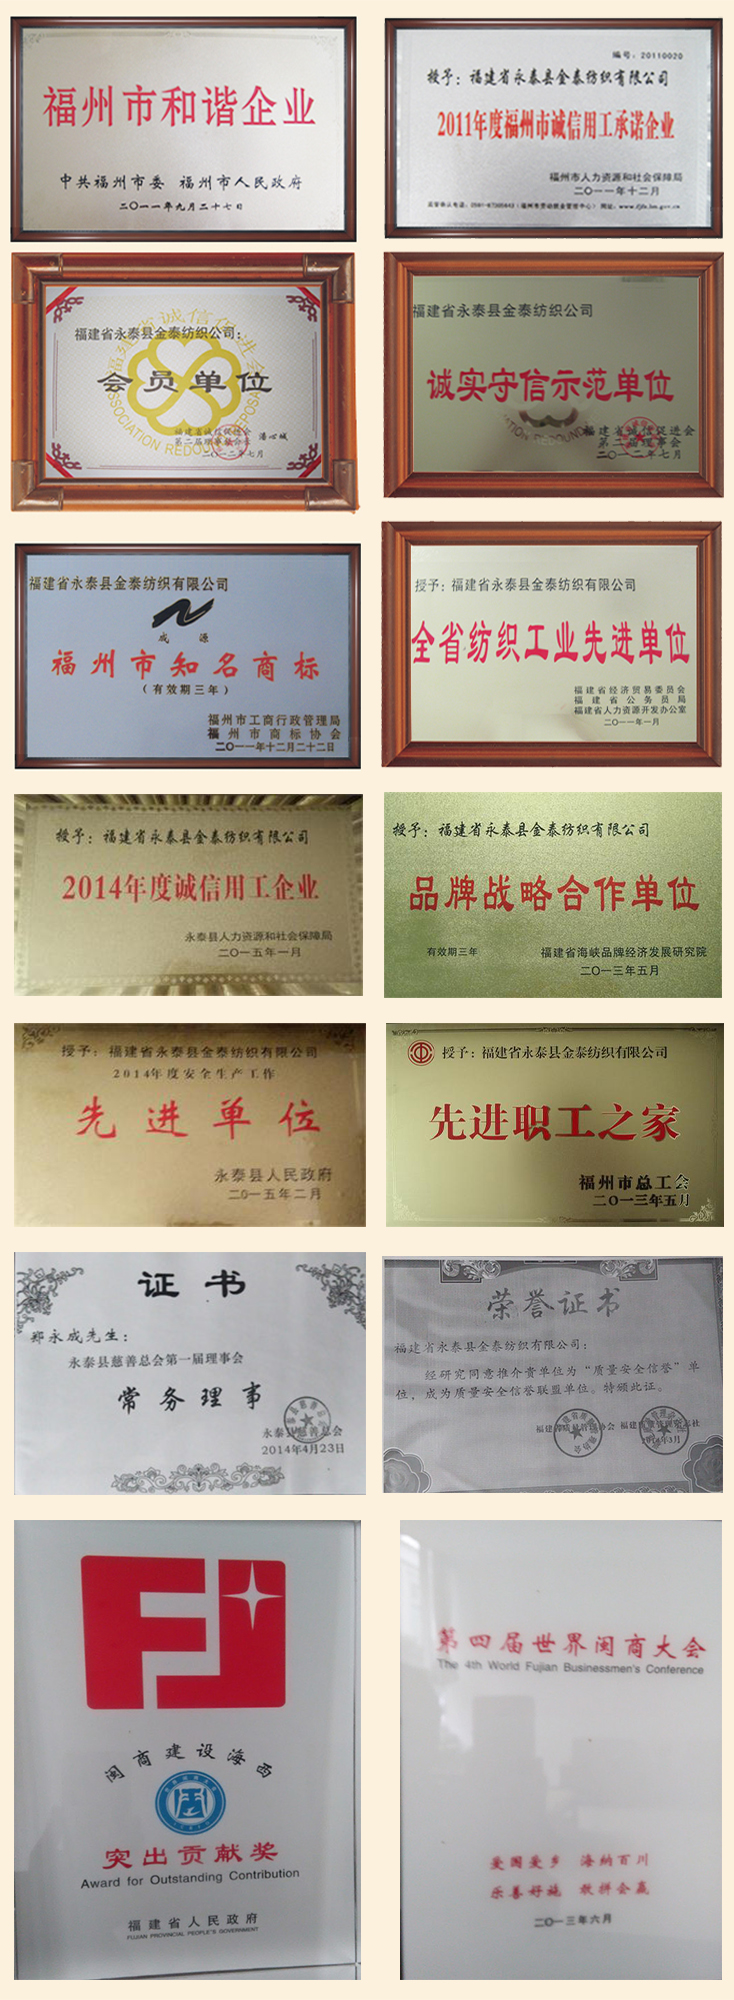 福州市和谐企业
中共福州市委 福州市人民政府
二〇一一年九月二十七日
编号：20110020
授予：福建省永泰县金泰纺织有限公司
2011年度福州市诚信用工承诺企业
福州市人力资源和社会保障局
二〇一一年十二月
福建省永泰县金泰纺织公司：
会员单位
福建省诚信促进会
第二届理事会会长 潘心城
二〇一二年七月
福建省永泰县金泰纺织公司
诚实守信示范单位
福建省诚信促进会
第二届理事会
二〇一二年七月
福建省永泰县金泰纺织有限公司
成 源
福州市知名商标
（有效期三年）
福州市工商行政管理局
福州市商标协会
二〇一一年十二月二十二日
授予：福建省永泰县金泰纺织有限公司
全省纺织工业先进单位
福建省经济贸易委员会
福建省公务员局
福建省人力资源开发办公室
二〇一一年一月
授予：福建省永泰县金泰纺织有限公司
2014年度诚信用工企业
永泰县人力资源和社会保障局
二〇一五年一月
授予：福建省永泰县金泰纺织有限公司
品牌战略合作单位
有效期三年 福建省海峡品牌经济发展研究院
二〇一三年五月
授予：福建省永泰县金泰纺织有限公司
2014年度安全生产工作
先进单位
永泰县人民政府
二〇一五年二月
授予：福建省永泰县金泰纺织有限公司
先进职工之家
福州市总工会
二〇一三年五月
证书
郑永成先生：
永泰县慈善总会第一届理事会
常务理事
永泰县慈善总会
2014年4月23日
荣誉证书
福建省永泰县金泰纺织有限公司：
经研究同意推介贵单位为“质量安全信誉”单
位，成为质量安全信誉联盟单位。特颁此证。
FJ
闽商建设海西
突出贡献奖
Award for Outstanding Contribution
福建省人民政府
FUJIAN PROVINCIAL PEOPLE'S GOVERNMENT
第四届世界闽商大会
The 4th World Fujian Businessmen's Conference
爱国爱乡 海纳百川
乐善好施 敢拼会赢
二〇一三年六月